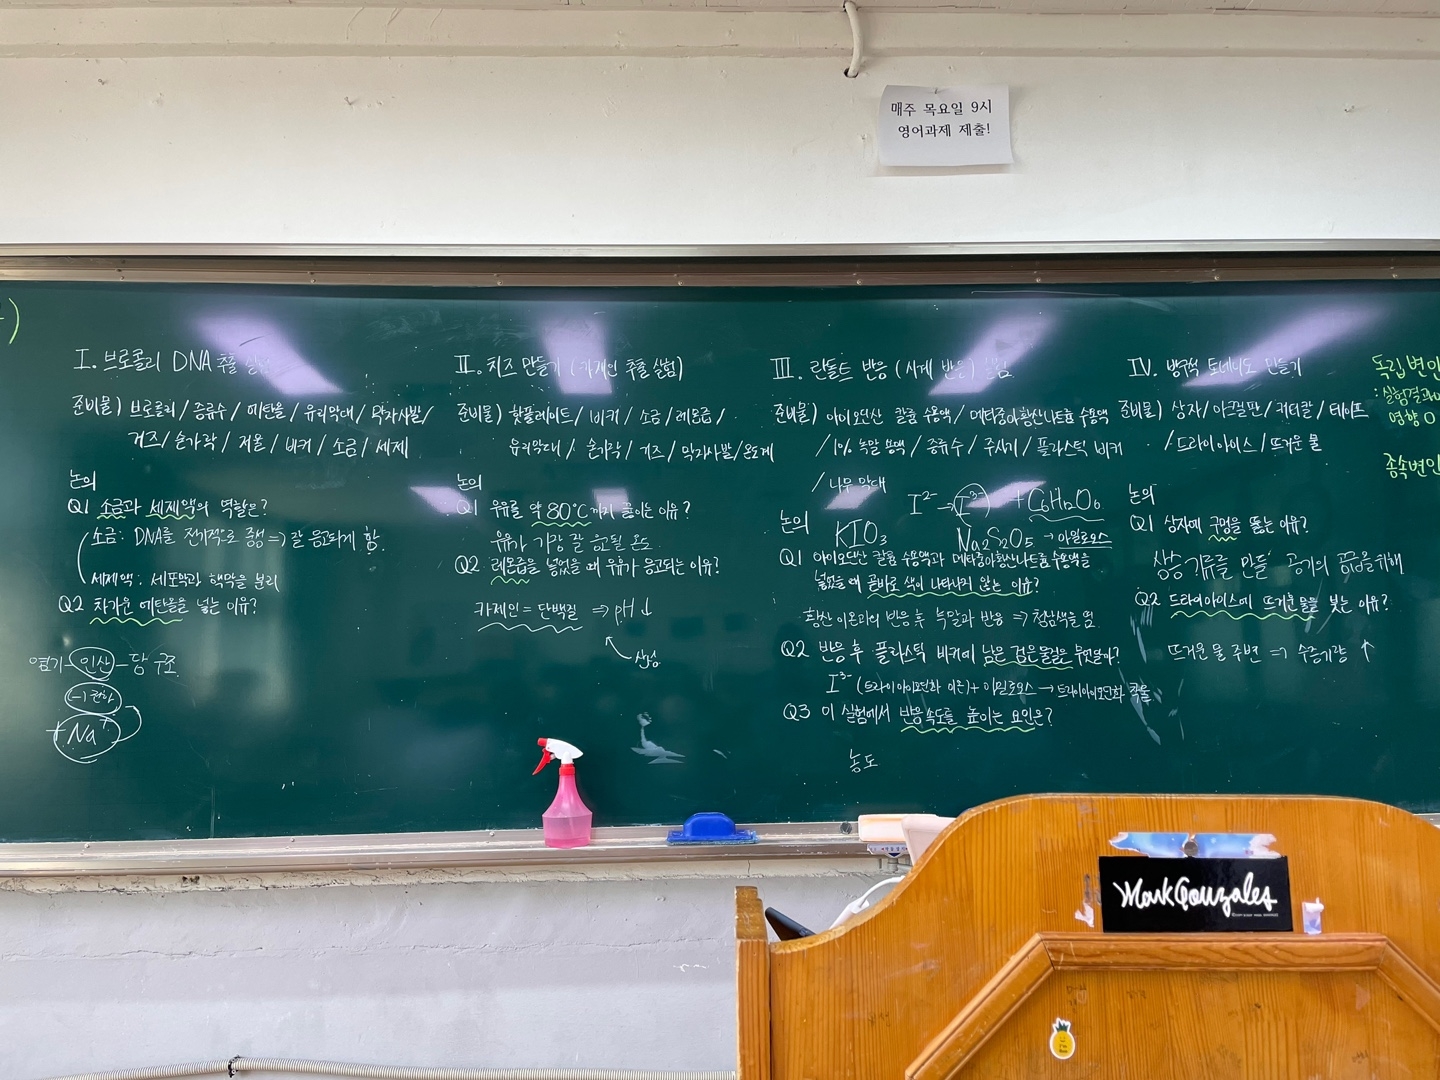 매주 목요일 9시
영어과제 제출!
I. 브로콜리 DNA 추출
준비물) 브로콜리 / 증류수 / 에탄올 / 유리막대 / 막자사발 /
거즈 / 숟가락 / 저울 / 비커 / 소금 / 세제
논의
Q1 소금과 세제액의 역할은?
소금: DNA를 전기적으로 중성 => 잘 응고되게 함.
세제액: 세포막과 핵막을 분리
Q2 차가운 에탄올을 넣는 이유?
염기-인산-당 구조
(-1 전하)
+ Na+
II. 치즈 만들기 (카제인 추출 실험)
준비물) 핫플레이트 / 비커 / 소금 / 레몬즙 /
유리막대 / 숟가락 / 거즈 / 막자사발 / 온도계
논의
Q1 우유를 약 80°C까지 끓이는 이유?
유가 가장 잘 응고될 온도
Q2 레몬즙을 넣었을 때 우유가 응고되는 이유?
카제인 = 단백질 => pH↓
산성
III. 란돌트 반응 (시계 반응) 실험
준비물) 아이오딘산 칼륨 수용액 / 메타중아황산나트륨 수용액
/ 1% 녹말 용액 / 증류수 / 주사기 / 플라스틱 비커
/ 나무 막대
논의
I2- → I3- + C6H12O6
KIO3 Na2S2O5 → 아밀로오스
Q1 아이오딘산 칼륨 수용액과 메타중아황산나트륨 수용액을
넣었을 때 곧바로 색이 나타나지 않는 이유?
황산 이온과의 반응 후 녹말과 반응 => 청남색을 띔
Q2 반응 후 플라스틱 비커에 남은 검은 물질은 무엇일까?
I3- (트라이아이오딘화 이온) + 아밀로오스 → 트라이아이오딘화 착물
Q3 이 실험에서 반응속도를 높이는 요인은?
농도
IV. 방구석 토네이도 만들기
준비물) 상자 / 아크릴판 / 커터칼 / 테이프
/ 드라이아이스 / 뜨거운 물
논의
Q1 상자에 구멍을 뚫는 이유?
상승 기류를 만들 공기의 공급을 위해
Q2 드라이아이스에 뜨거운 물을 붓는 이유?
뜨거운 물 주변 => 수증기량 ↑
독립변인
: 실험결과에
영향 O
종속변인
Mark Gonzales